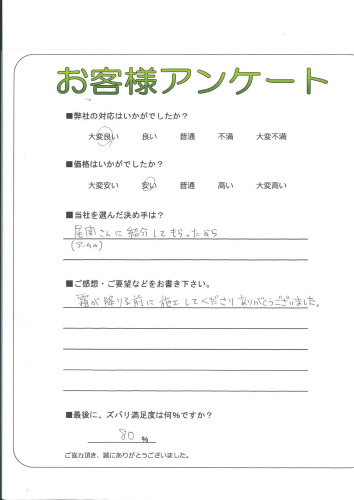 お客様アンケート
■弊社の対応はいかがでしたか？
大変良い 良い 普通 不満 大変不満
■価格はいかがでしたか？
大変安い 安い 普通 高い 大変高い
■当社を選んだ決め手は？
尾関さんに紹介してもらったから
■ご感想・ご要望などをお書き下さい。
霜が降りる前に施工してくださりありがとうございました。
■最後に、ズバリ満足度は何%ですか？
80 %
ご協力頂き、誠にありがとうございました。